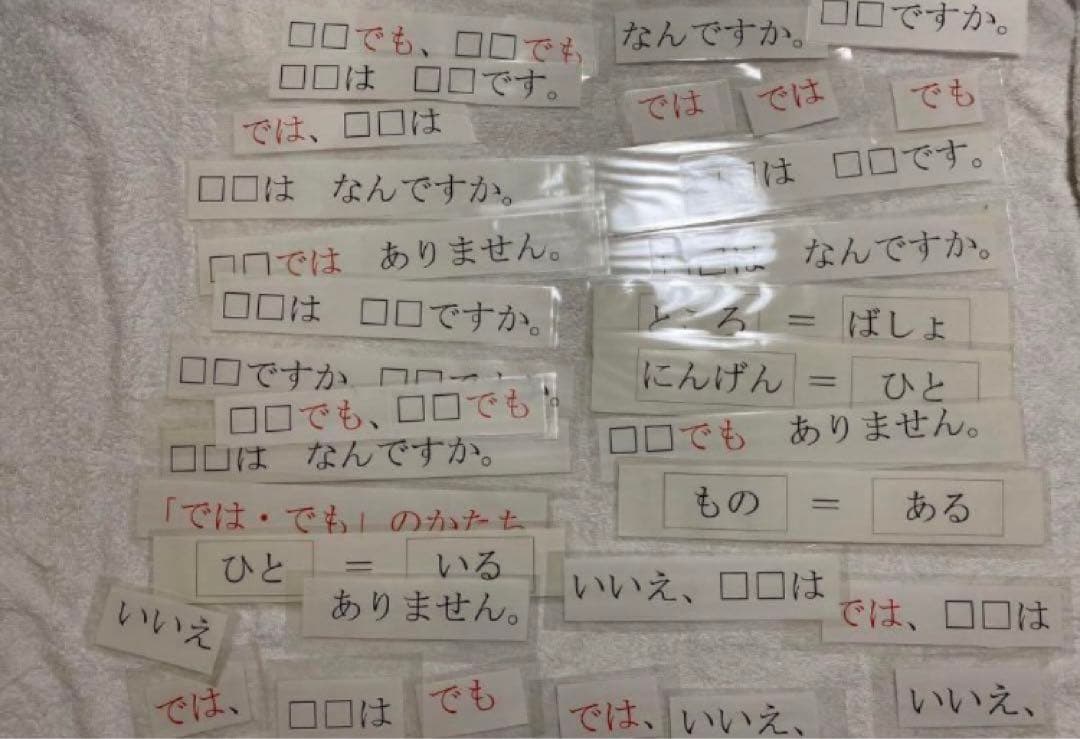 □□でも、□□でも
□□は　□□です。
では、□□は
□□は　なんですか。
□□では　ありません。
□□は　□□ですか。
□□ですか
□□でも、□□でも
□□は　なんですか。
「では・でも」のかたち
ひと ＝ いる
ありません。
いいえ
では、
□□は
でも
なんですか。
□□ですか。
では
では
でも
□は　□□です。
□は　なんですか。
ところ ＝ ばしょ
にんげん ＝ ひと
□□でも　ありません。
もの ＝ ある
いいえ、□□は
では、□□は
では、
いいえ、
いいえ、